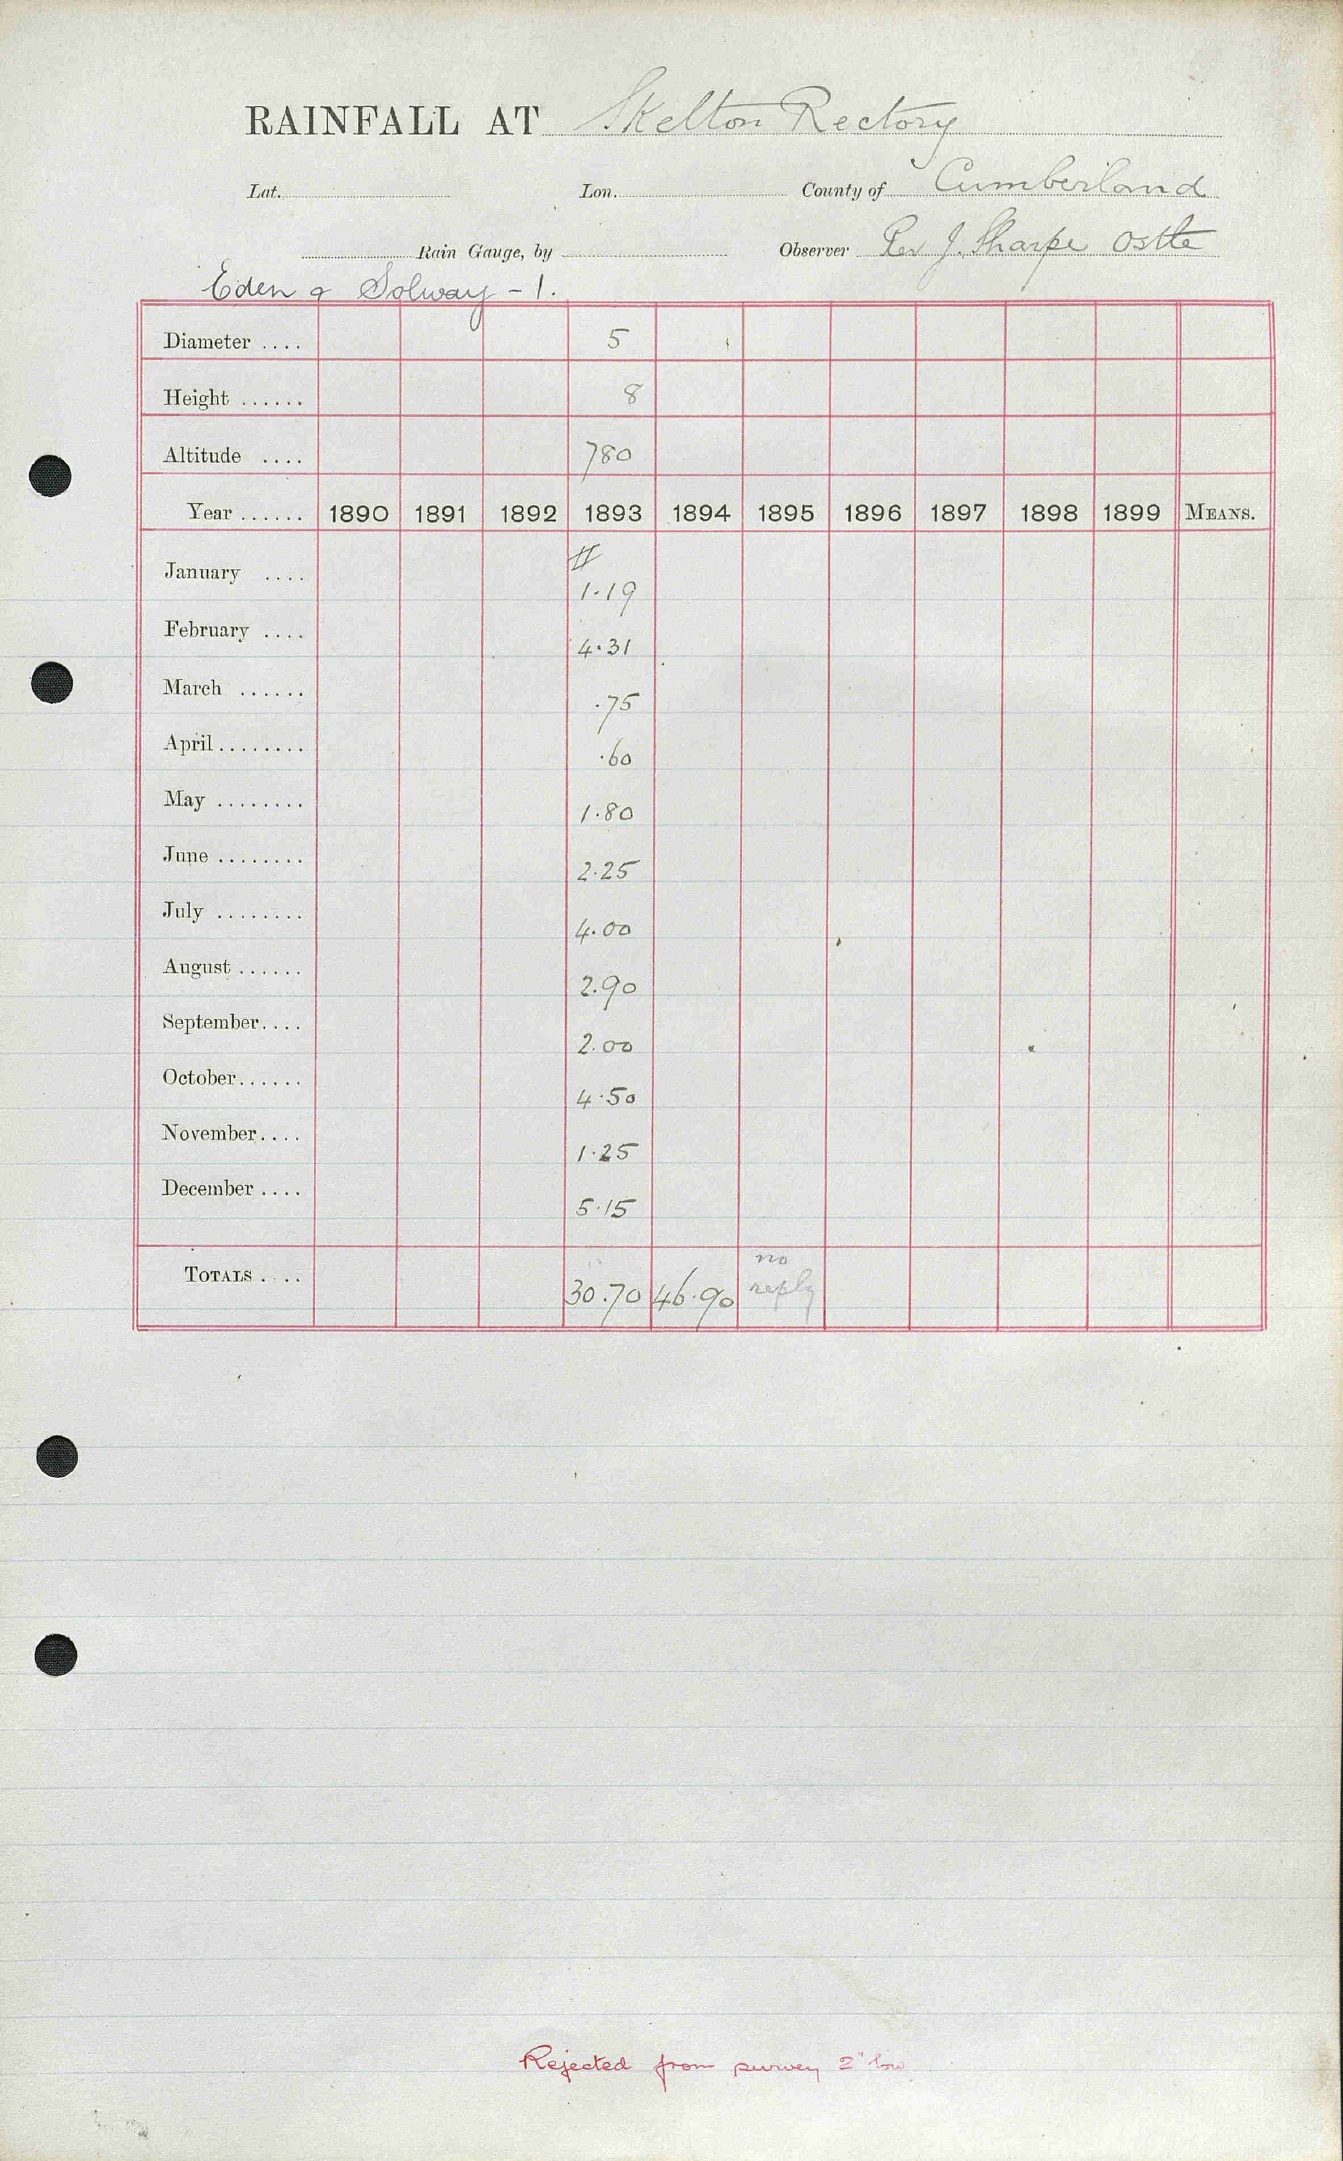 RAINFALL AT Skelton Rectory
Lat. Lon. County of Cumberland
Rain Gauge, by Observer Rev J. Sharpe Ostle
Eden & Solway - 1.
Diameter .... 5
Height ...... 8
Altitude .... 780
Year ...... 1890 1891 1892 1893 1894 1895 1896 1897 1898 1899 MEANS.
January .... #
1.19
February .... 4.31
March ...... .75
April ........ .60
May ........ 1.80
June ........ 2.25
July ........ 4.00
August ...... 2.90
September.... 2.00
October...... 4.50
November.... 1.25
December .... 5.15
TOTALS .... 30.70 46.90 no reply
Rejected from survey 2" low